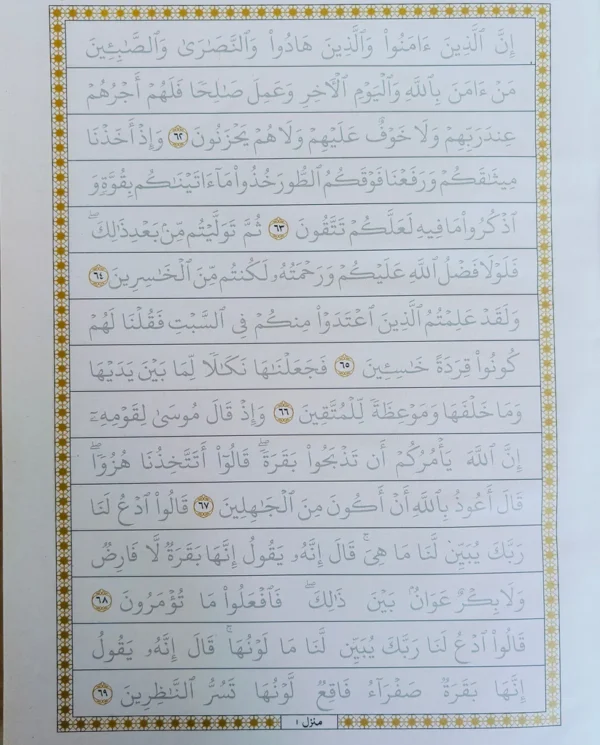 إِنَّ ٱلَّذِينَ ءَامَنُواْ وَٱلَّذِينَ هَادُواْ وَٱلنَّصَٰرَىٰ وَٱلصَّٰبِـِٔينَ
مَنۡ ءَامَنَ بِٱللَّهِ وَٱلۡيَوۡمِ ٱلۡأٓخِرِ وَعَمِلَ صَٰلِحٗا فَلَهُمۡ أَجۡرُهُمۡ
عِندَ رَبِّهِمۡ وَلَا خَوۡفٌ عَلَيۡهِمۡ وَلَا هُمۡ يَحۡزَنُونَ ٦٢ وَإِذۡ أَخَذۡنَا
مِيثَٰقَكُمۡ وَرَفَعۡنَا فَوۡقَكُمُ ٱلطُّورَ خُذُواْ مَآ ءَاتَيۡنَٰكُم بِقُوَّةٖ وَ
ٱذۡكُرُواْ مَا فِيهِ لَعَلَّكُمۡ تَتَّقُونَ ٦٣ ثُمَّ تَوَلَّيۡتُم مِّنۢ بَعۡدِ ذَٰلِكَۖ
فَلَوۡلَا فَضۡلُ ٱللَّهِ عَلَيۡكُمۡ وَرَحۡمَتُهُۥ لَكُنتُم مِّنَ ٱلۡخَٰسِرِينَ ٦٤
وَلَقَدۡ عَلِمۡتُمُ ٱلَّذِينَ ٱعۡتَدَوۡاْ مِنكُمۡ فِي ٱلسَّبۡتِ فَقُلۡنَا لَهُمۡ
كُونُواْ قِرَدَةً خَٰسِـِٔينَ ٦٥ فَجَعَلۡنَٰهَا نَكَٰلٗا لِّمَا بَيۡنَ يَدَيۡهَا
وَمَا خَلۡفَهَا وَمَوۡعِظَةٗ لِّلۡمُتَّقِينَ ٦٦ وَإِذۡ قَالَ مُوسَىٰ لِقَوۡمِهِۦٓ
إِنَّ ٱللَّهَ يَأۡمُرُكُمۡ أَن تَذۡبَحُواْ بَقَرَةٗۖ قَالُوٓاْ أَتَتَّخِذُنَا هُزُوٗاۖ
قَالَ أَعُوذُ بِٱللَّهِ أَنۡ أَكُونَ مِنَ ٱلۡجَٰهِلِينَ ٦٧ قَالُواْ ٱدۡعُ لَنَا
رَبَّكَ يُبَيِّن لَّنَا مَا هِيَۚ قَالَ إِنَّهُۥ يَقُولُ إِنَّهَا بَقَرَةٞ لَّا فَارِضٞ
وَلَا بِكۡرٌ عَوَانُۢ بَيۡنَ ذَٰلِكَۖ فَٱفۡعَلُواْ مَا تُؤۡمَرُونَ ٦٨
قَالُواْ ٱدۡعُ لَنَا رَبَّكَ يُبَيِّن لَّنَا مَا لَوۡنُهَاۚ قَالَ إِنَّهُۥ يَقُولُ
إِنَّهَا بَقَرَةٞ صَفۡرَآءُ فَاقِعٞ لَّوۡنُهَا تَسُرُّ ٱلنَّٰظِرِينَ ٦٩
منزل ١